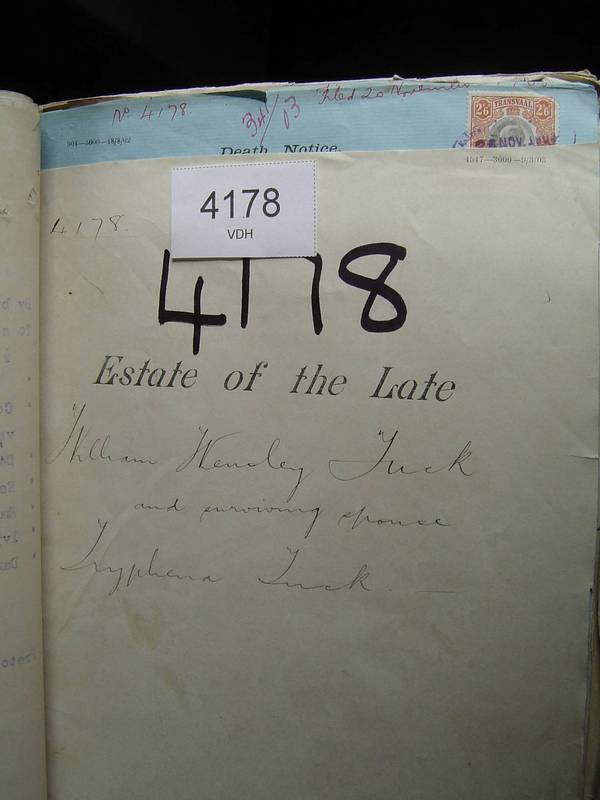 No 4178.
34/03
Filed 20 November
TRANSVAAL
2/6 2/6
NOV
304—3000—18/8/02
Death Notice.
4547—3000—9/3/03
4178.
4178
VDH
4178
Estate of the Late
William Wensley Tuck
and surviving spouse
Tryphena Tuck.—